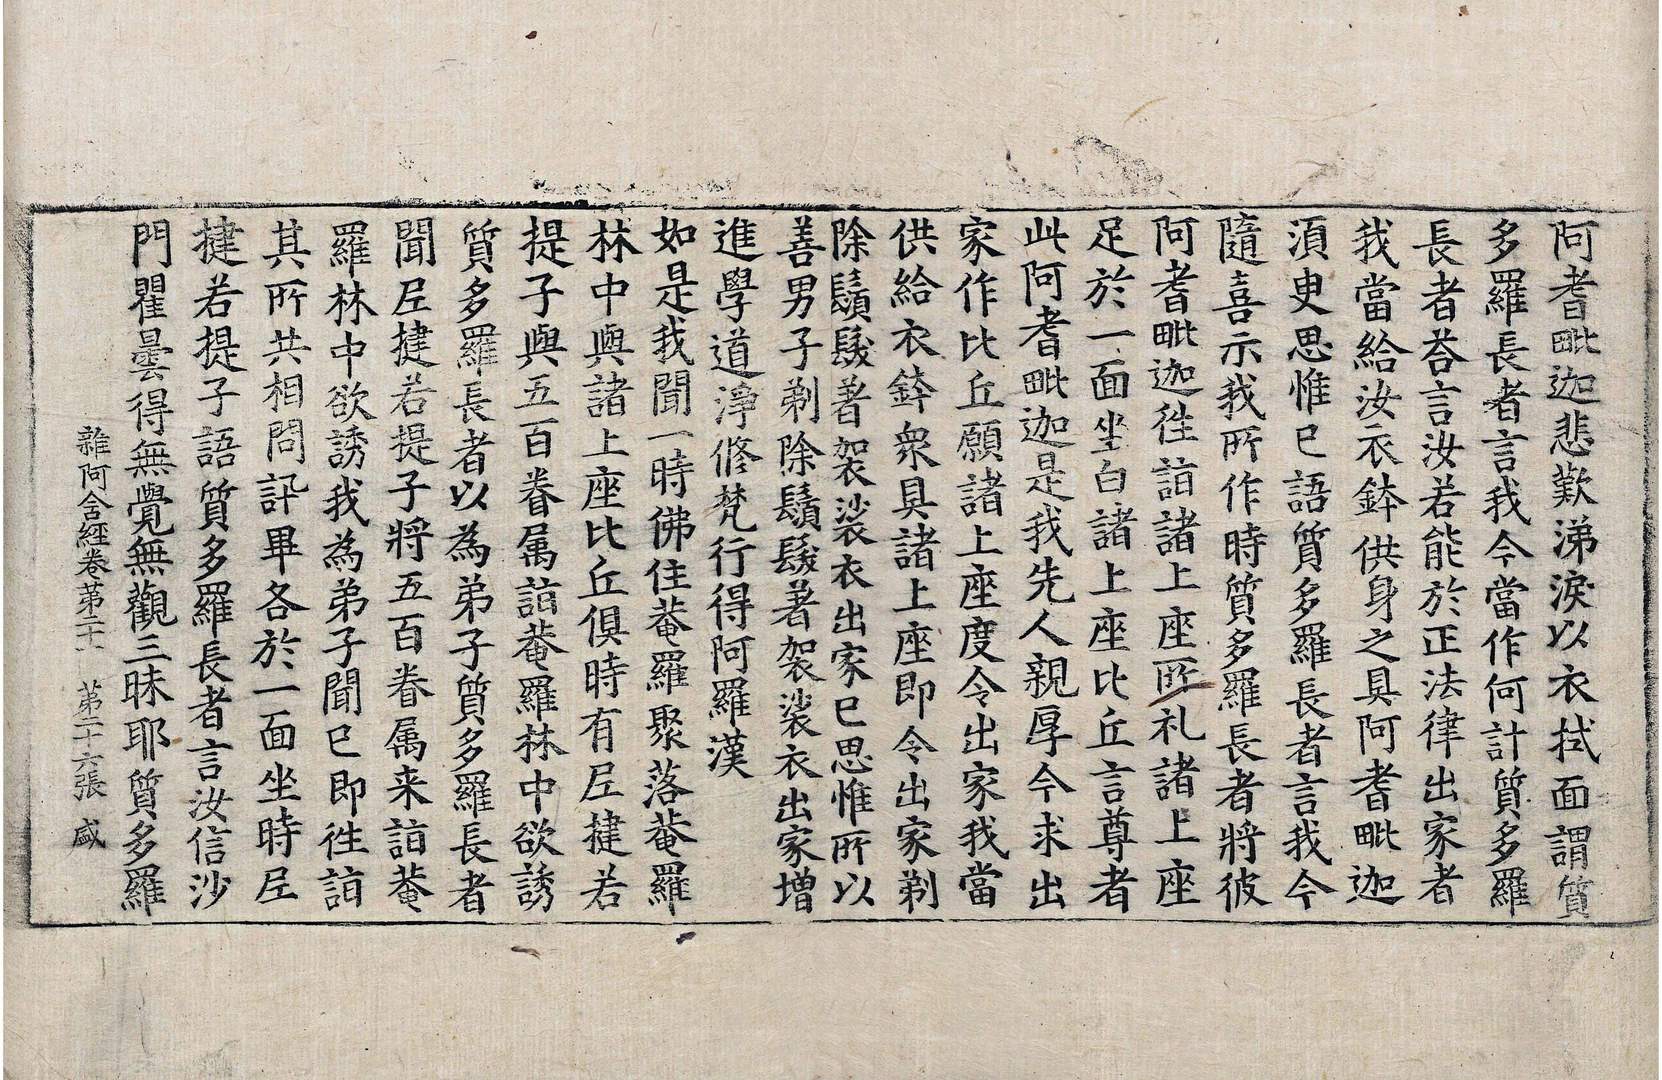 阿耆毗迦悲歎涕淚以衣拭面謂質
多羅長者言我今當作何計質多羅
長者荅言汝若能於正法律出家者
我當給汝衣鉢供身之具阿耆毗迦
湏臾思惟已語質多羅長者言我今
隨喜示我所作時質多羅長者將彼
阿耆毗迦徃詣諸上座所礼諸上座
足於一面坐白諸上座比丘言尊者
此阿耆毗迦是我先人親厚今求出
家作比丘願諸上座度令出家我當
供給衣鉢衆具諸上座即令出家剃
除鬚髮著袈裟衣出家已思惟所以
善男子剃除鬚髮著袈裟衣出家增
進學道淨修梵行得阿羅漢
如是我聞一時佛住菴羅聚落菴羅
林中與諸上座比丘俱時有尼揵若
提子與五百眷属詣菴羅林中欲誘
質多羅長者以為弟子質多羅長者
聞尼揵若提子將五百眷属来詣菴
羅林中欲誘我為弟子聞已即徃詣
其所共相問訊畢各於一面坐時尼
揵若提子語質多羅長者言汝信沙
門瞿曇得無覺無觀三昧耶質多羅
雜阿含經卷第二十一 第二十六張 咸